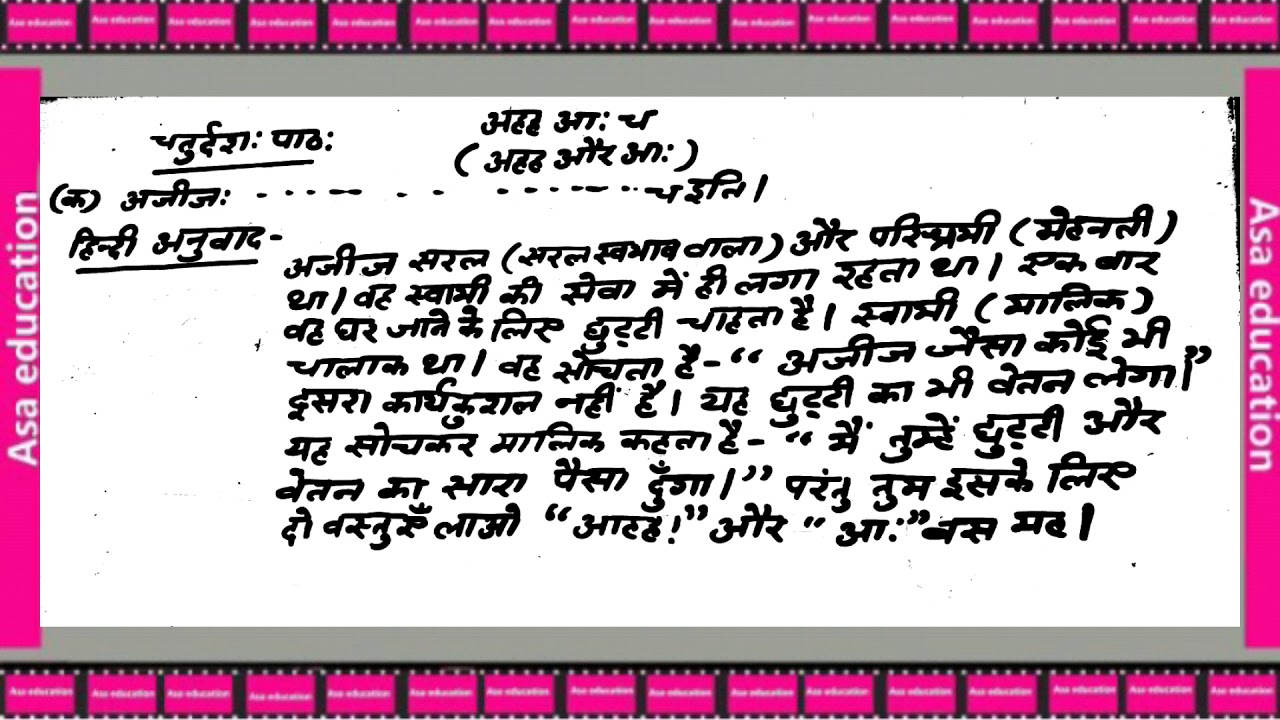 Asa education Asa education Asa education Asa education Asa education Asa education Asa education Asa education Asa education Asa education Asa education Asa education Asa education Asa education Asa education Asa education
Asa education
चतुर्दशः पाठः
अहह आः च
(अहह और आः)
(क) अजीजः - - - - - - - - - - - - - च इति।
हिन्दी अनुवाद-
अजीज सरल (सरल स्वभाव वाला) और परिश्रमी (मेहनती)
था। वह स्वामी की सेवा में ही लगा रहता था। एक बार
वह घर जाने के लिए छुट्टी चाहता है। स्वामी (मालिक)
चालाक था। वह सोचता है-“ अजीज जैसा कोई भी
दूसरा कार्यकुशल नहीं है। यह छुट्टी का भी वेतन लेगा।”
यह सोचकर मालिक कहता है- “ मैं तुम्हें छुट्टी और
वेतन का सारा पैसा दूँगा।” परंतु तुम इसके लिए
दो वस्तुएँ लाओ “अहह!” और “ आः” बस यह।
Asa education
Asa education Asa education Asa education Asa education Asa education Asa education Asa education Asa education Asa education Asa education Asa education Asa education Asa education Asa education Asa education Asa education